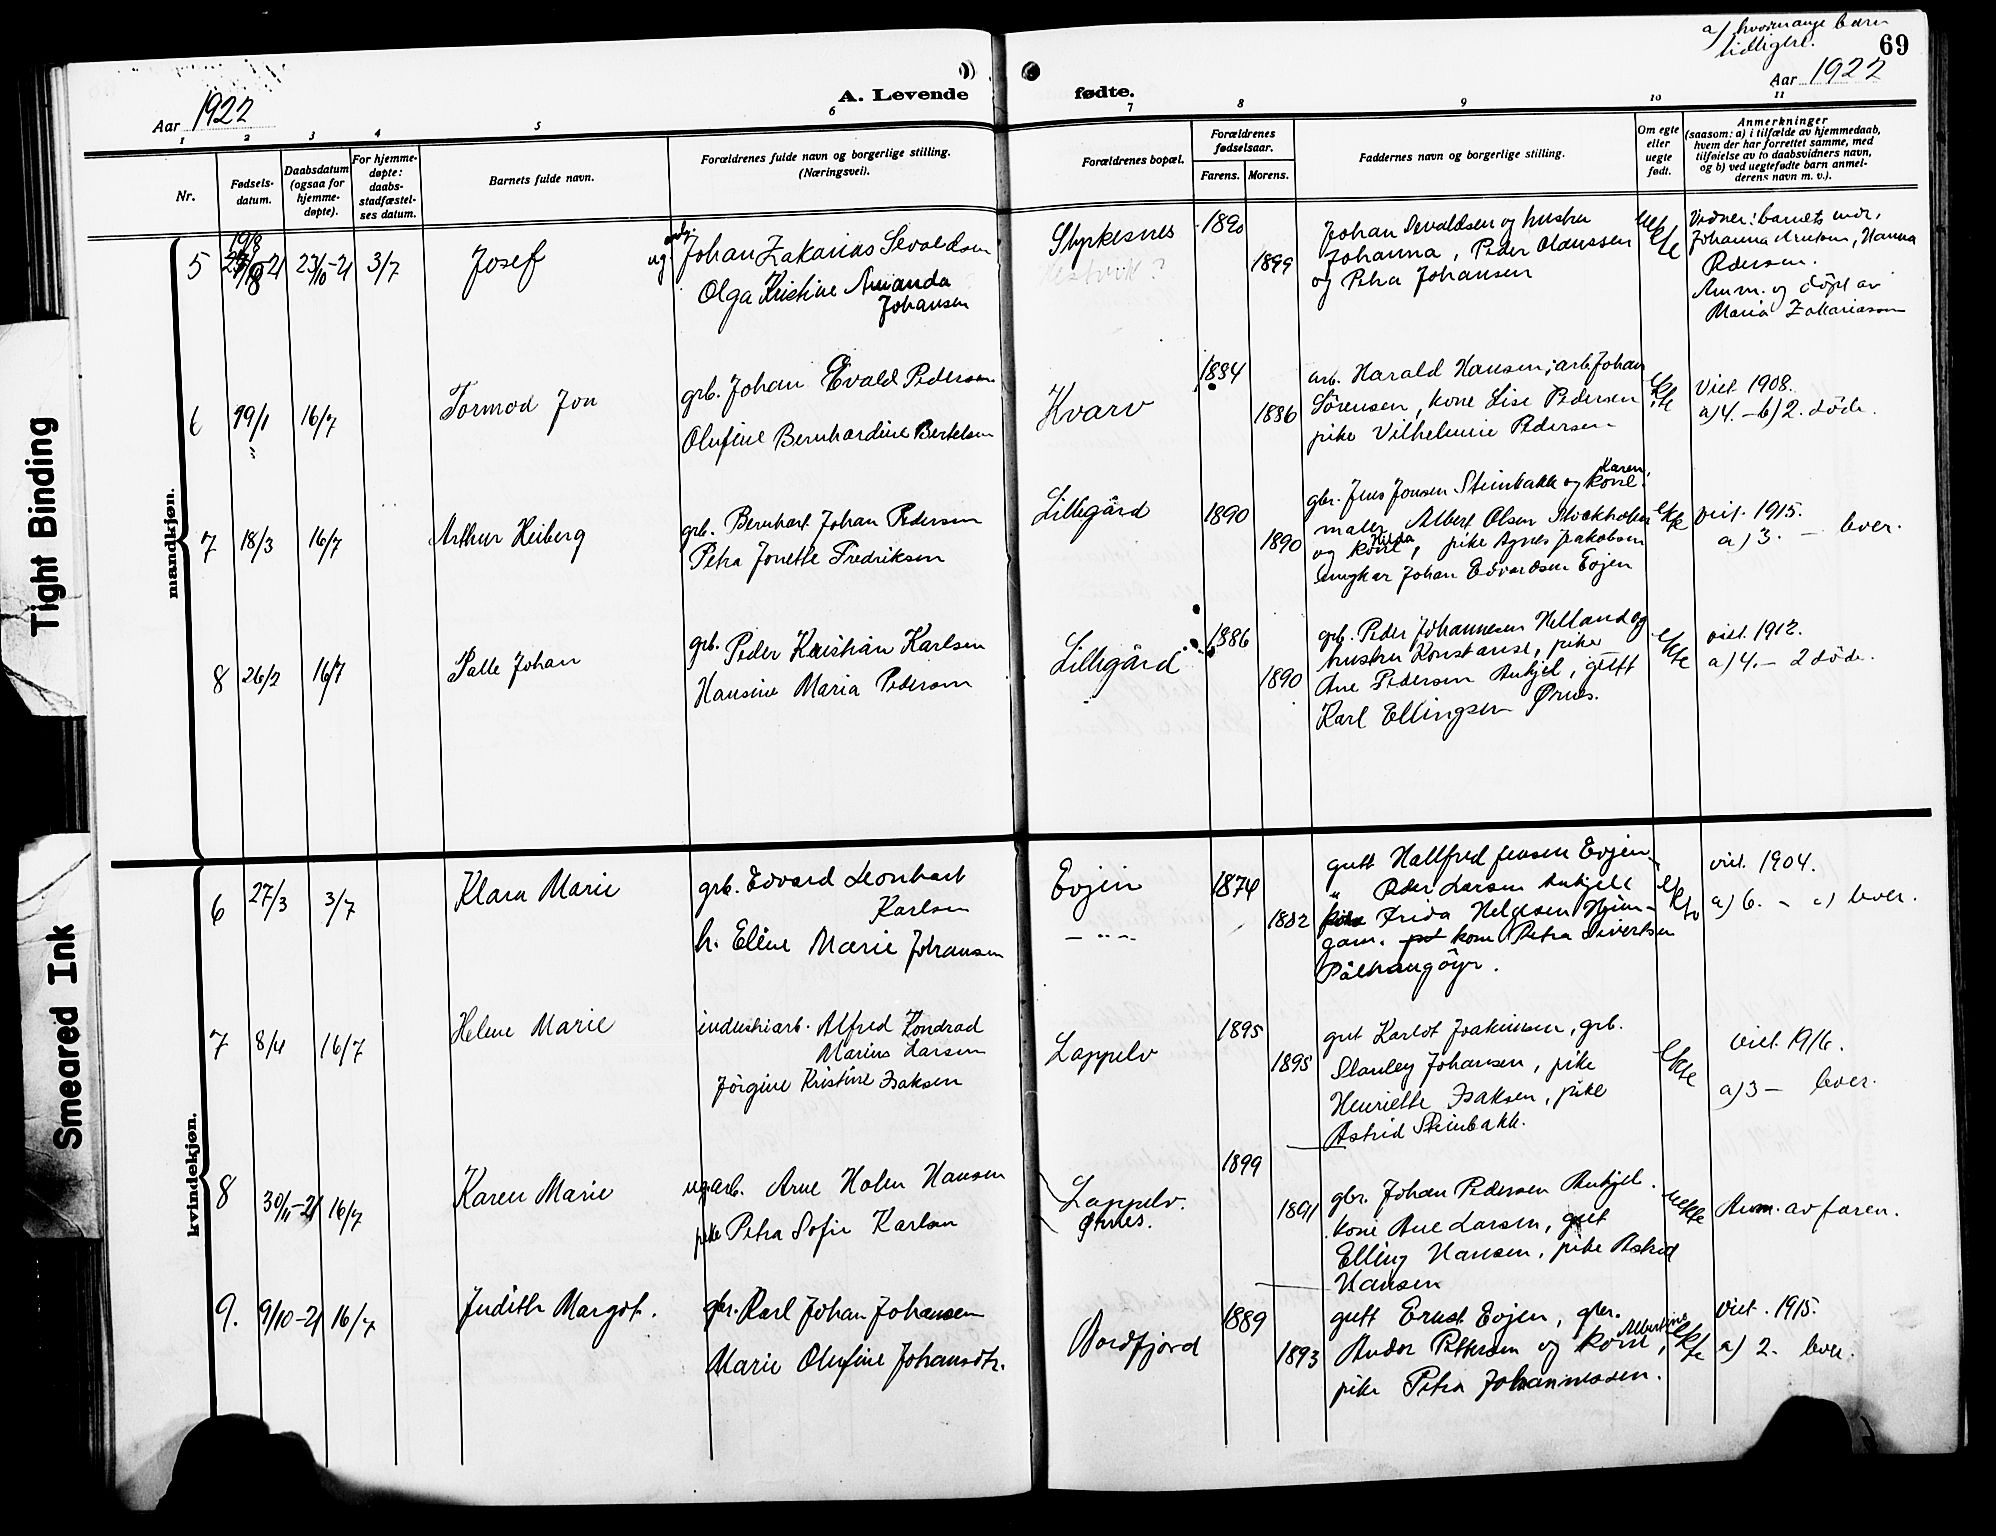 a) hvormange barn
tidligere.
69
Aar 1922
A. Levende fødte.
Aar 1922
1 2 3 4 5 6 7 8 9 10 11
Nr.
Fødsels-
datum.
Daabsdatum
(ogsaa for
hjemme-
døpte).
For hjemme-
døpte:
daabs-
stadfæstel-
ses datum.
Barnets fulde navn.
Forældrenes fulde navn og borgerlige stilling.
(Næringsvei).
Forældrenes bopæl.
Forældrenes
fødselsaar.
Farens. Morens.
Faddernes navn og borgerlige stilling.
Om egte
eller
uegte
født.
Anmerkninger
(saasom: a) i tilfælde av hjemmedaab,
hvem der har forrettet samme, med
tilføielse av to daabsvidners navn,
og b) ved uegtefødte barn anmel-
derens navn m. v.).
mandkjøn.
5 19/8 -21 23/10-21 3/7 Josef
ug Johan Zakarias Sevaldsen
Olga Kristine Amanda
Johansen
Styrkesnes
1890
1899
Johan Sevaldsen og hustru
Johanna, Peder Olaussen
og Petra Johansen
Uekte
Vidner: barnets mor,
Johanna Arntsen, Hanna
Pedersen.
Anm. og døpt av
Maria Zakariassen
6 19/1 16/7 Tormod Jon
grb. Johan Evald Pedersen
Olufine Bernhardine Bertelsen
Kvarv
1884
1886
arb. Harald Hansen; arb. Johan
Sørensen, kone Lise Pedersen
pike Vilhelmine Pedersen
Ekte
Viet 1908.
a) 4. - b) 2. døde.
7 18/3 16/7 Arthur Heiberg
grb. Bernhart Johan Pedersen
Petra Jonette Fredriksen
Lillegård
1890
1890
gbr. Jens Jonsen Steinbakk og kone Karen,
maler Albert Olsen Stockholm
og kone Hilda, pike Agnes Jakobsen
ungkar Johan Edvardsen Evjen
Ekte
viet. 1915.
a) 3. - lever.
8 26/2 16/7 Palle Johan
grb. Peder Kristian Karlsen
Hansine Maria Pedersen
Lillegård
1886
1890
grb. Peder Johannesen Helland og
hustru Konstanse, pike
Ane Pedersen Aukjel, gutt
Karl Ellingsen Ørnes.
Ekte
viet. 1912.
a) 4. - 2 døde.
kvindekjøn.
6 27/3 3/7 Klara Marie
grb. Edvard Leonhart
Karlsen
h. Eline Marie Johansen
Evjen
- " -
1874
1882
gutt Hallfred Jensen Evjen
" Peder Larsen Aukjell
Frida Helgesen Hjem-
gam. kone Petra Sivertsen
Pålhaugöyr.
Ekte
viet. 1904.
a) 6. - lever.
7 8/4 16/7 Helene Marie
industriarb. Alfred Kondrad
Marius Larsen
Jörgine Kristine Isaksen
Lappelv
1895
1895
gut Karlot Joakimsen, grb.
Stanley Johansen, pike
Henriette Isaksen, pike
Astrid Steinbakk.
Ekte
viet. 1916.
a) 3 - lever.
8 30/11-21 16/7 Karen Marie
ug. arb. Arne Holm Hansen
pike Petra Sofie Karlsen
Lappelv.
Ørnes.
1899
1891
gbr. Johan Pedersen Aukjel.
kone Ane Larsen, gut
Elling Hansen, pike Astrid
Hansen
uekte
Anm. av faren.
9. 9/10-21 16/7 Judith Margot.
gbr. Karl Johan Johansen
Marie Olufine Johansdtr.
Nordfjord
1889
1893
gutt Ernst Evjen, gbr.
Andor Pettersen og kone Albertine,
pike Petra Johannessen.
Ekte
viet. 1915.
a) 2. lever.
Tight Binding
Smeared Ink